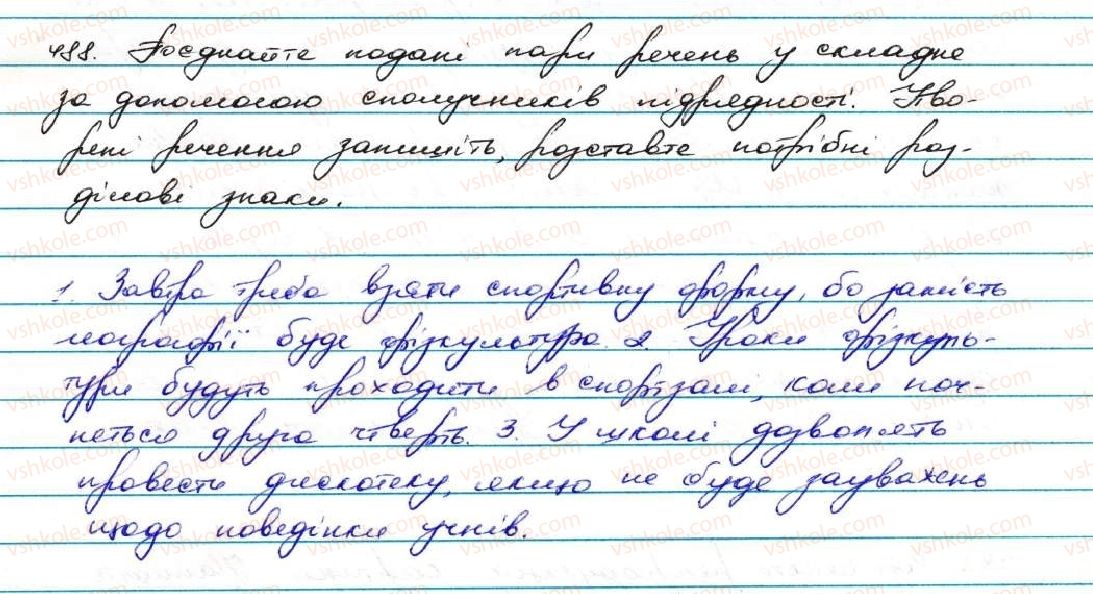 488. Поєднайте подані пари речень у складне
за допомогою сполучників підрядності. Утво-
рені речення запишіть, розставте потрібні роз-
ділові знаки.
1. Завтра треба взяти спортивну форму, бо замість
географії буде фізкультура. 2. Уроки фізкуль-
тури будуть проходити в спортзалі, коли поч-
неться друга чтверть. 3. У школі дозволять
провести дискотеку, якщо не буде зауважень
щодо поведінки учнів.